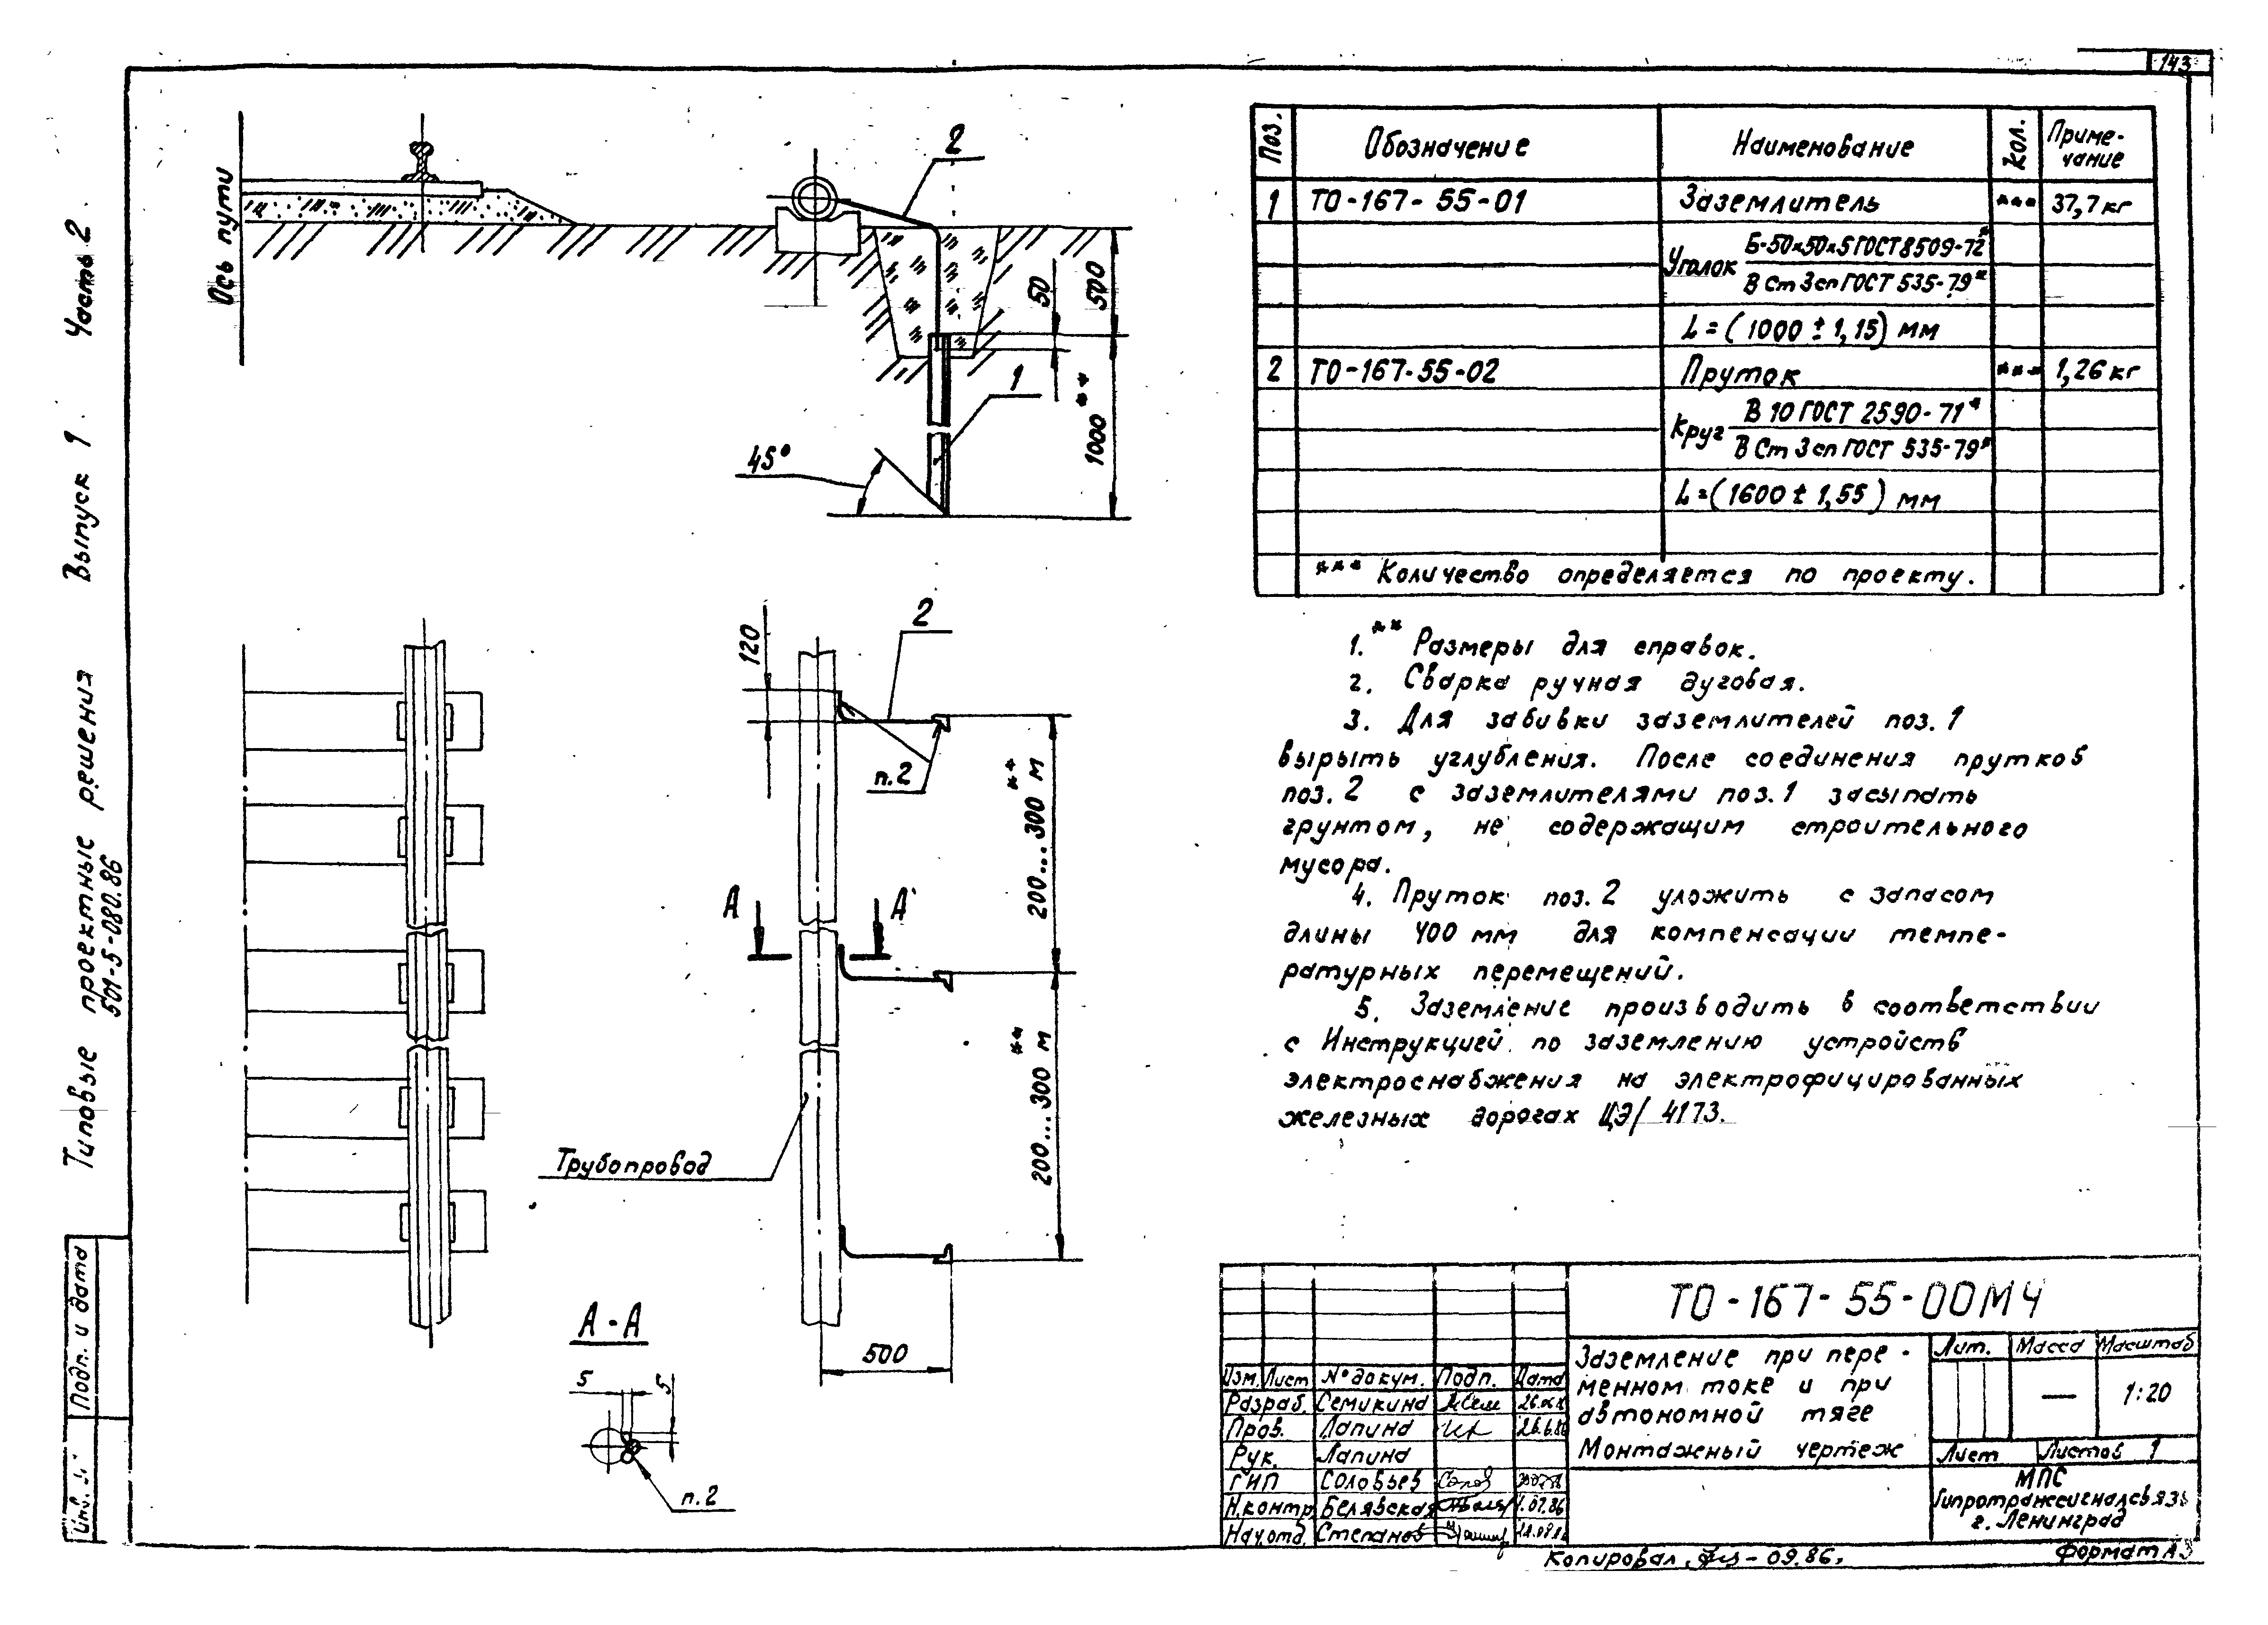 143
Часть 2
Выпуск 1
Типовые проектные решения
501-5-080.86
Подп. и дата
Ось пути
2
50
500
1000**
1
45°
120
2
п.2
200...300 м**
А А
200...300 м**
Трубопровод
500
А-А
5 5
п.2
Поз. Обозначение Наименование Кол. Приме-
чание
1 ТО-167-55-01 Заземлитель *** 37,7 кг
Уголок Б-50х50х5 ГОСТ 8509-72*
В Ст 3 сп ГОСТ 535-79*
L = (1000 ± 1,15) мм
2 ТО-167-55-02 Пруток *** 1,26 кг
Круг В 10 ГОСТ 2590-71*
В Ст 3 сп ГОСТ 535-79*
L = (1600 ± 1,55) мм
*** Количество определяется по проекту.
1.** Размеры для справок.
2. Сварка ручная дуговая.
3. Для забивки заземлителей поз. 1
вырыть углубления. После соединения прутков
поз. 2 с заземлителями поз. 1 засыпать
грунтом, не содержащим строительного
мусора.
4. Пруток поз. 2 уложить с запасом
длины 400 мм для компенсации темпе-
ратурных перемещений.
5. Заземление производить в соответствии
с Инструкцией по заземлению устройств
электроснабжения на электрофицированных
железных дорогах ЦЭ/4173.
ТО-167-55-00МЧ
Заземление при пере-
менном токе и при
автономной тяге
Монтажный чертеж
Лит. Масса Масштаб
— 1:20
Лист Листов 1
МПС
Гипротранссигналсвязь
г. Ленинград
Изм. Лист № докум. Подп. Дата
Разраб. Семикина
Пров. Лапина 26.6.86
Рук. Лапина
ГИП Соловьев
Н.контр. Белявская
Нач.отд. Степанов
Копировал 09.86.
Формат А3